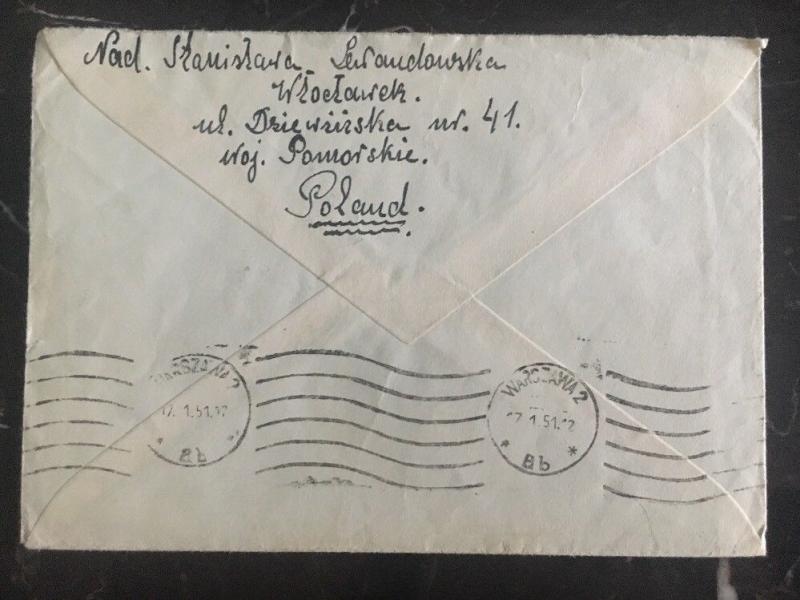 Nad. Stanisława Lewandowska
Włocławek.
ul. Dziewińska nr. 41.
woj. Pomorskie.
Poland.
WARSZAWA 2
17. 1.51.12
Bb
WARSZAWA 2
17. 1.51.12
* Bb *